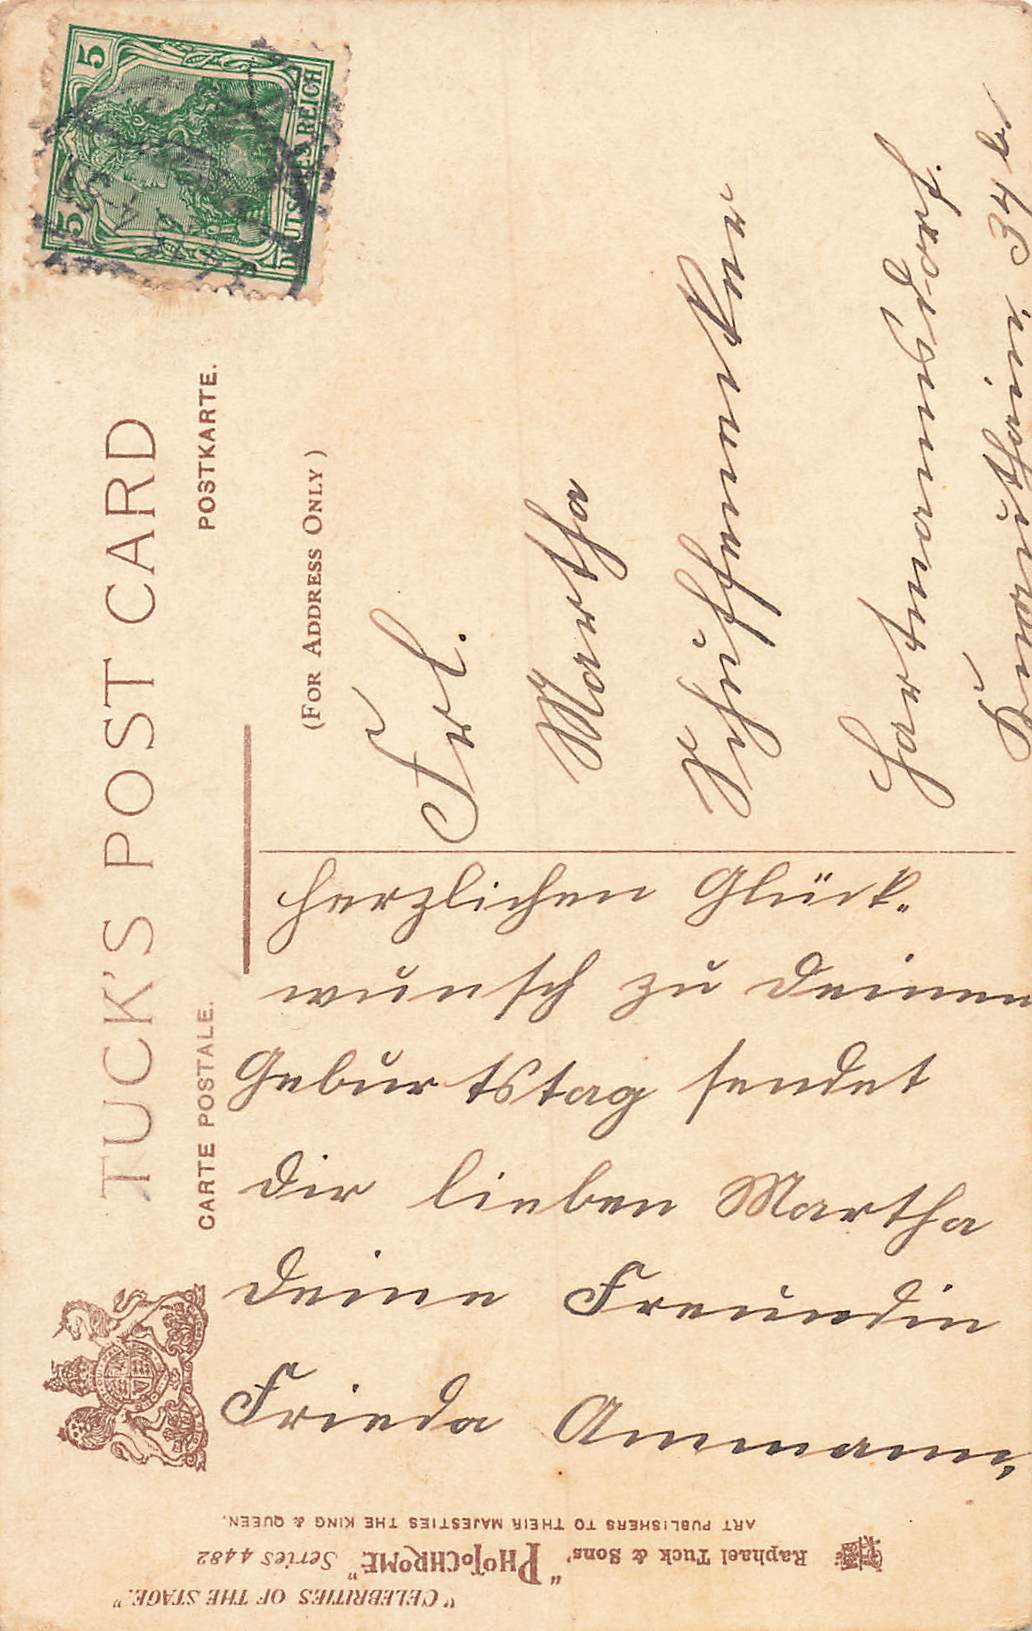 5
5
DEUTSCHES REICH
TUCK'S POST CARD
CARTE POSTALE.
POSTKARTE.
(FOR ADDRESS ONLY)
Frl.
Martha
Schuffenhauer
Hartmannsdorf.
34 b
Herzlichen Glück-
wunsch zu deinen
Geburtstag sendet
dir lieben Martha
deine Freundin
Frieda Ammann,
Raphael Tuck & Sons' "PHOTOCHROME" Series 4482
ART PUBLISHERS TO THEIR MAJESTIES THE KING & QUEEN.
"CELEBRITIES OF THE STAGE."